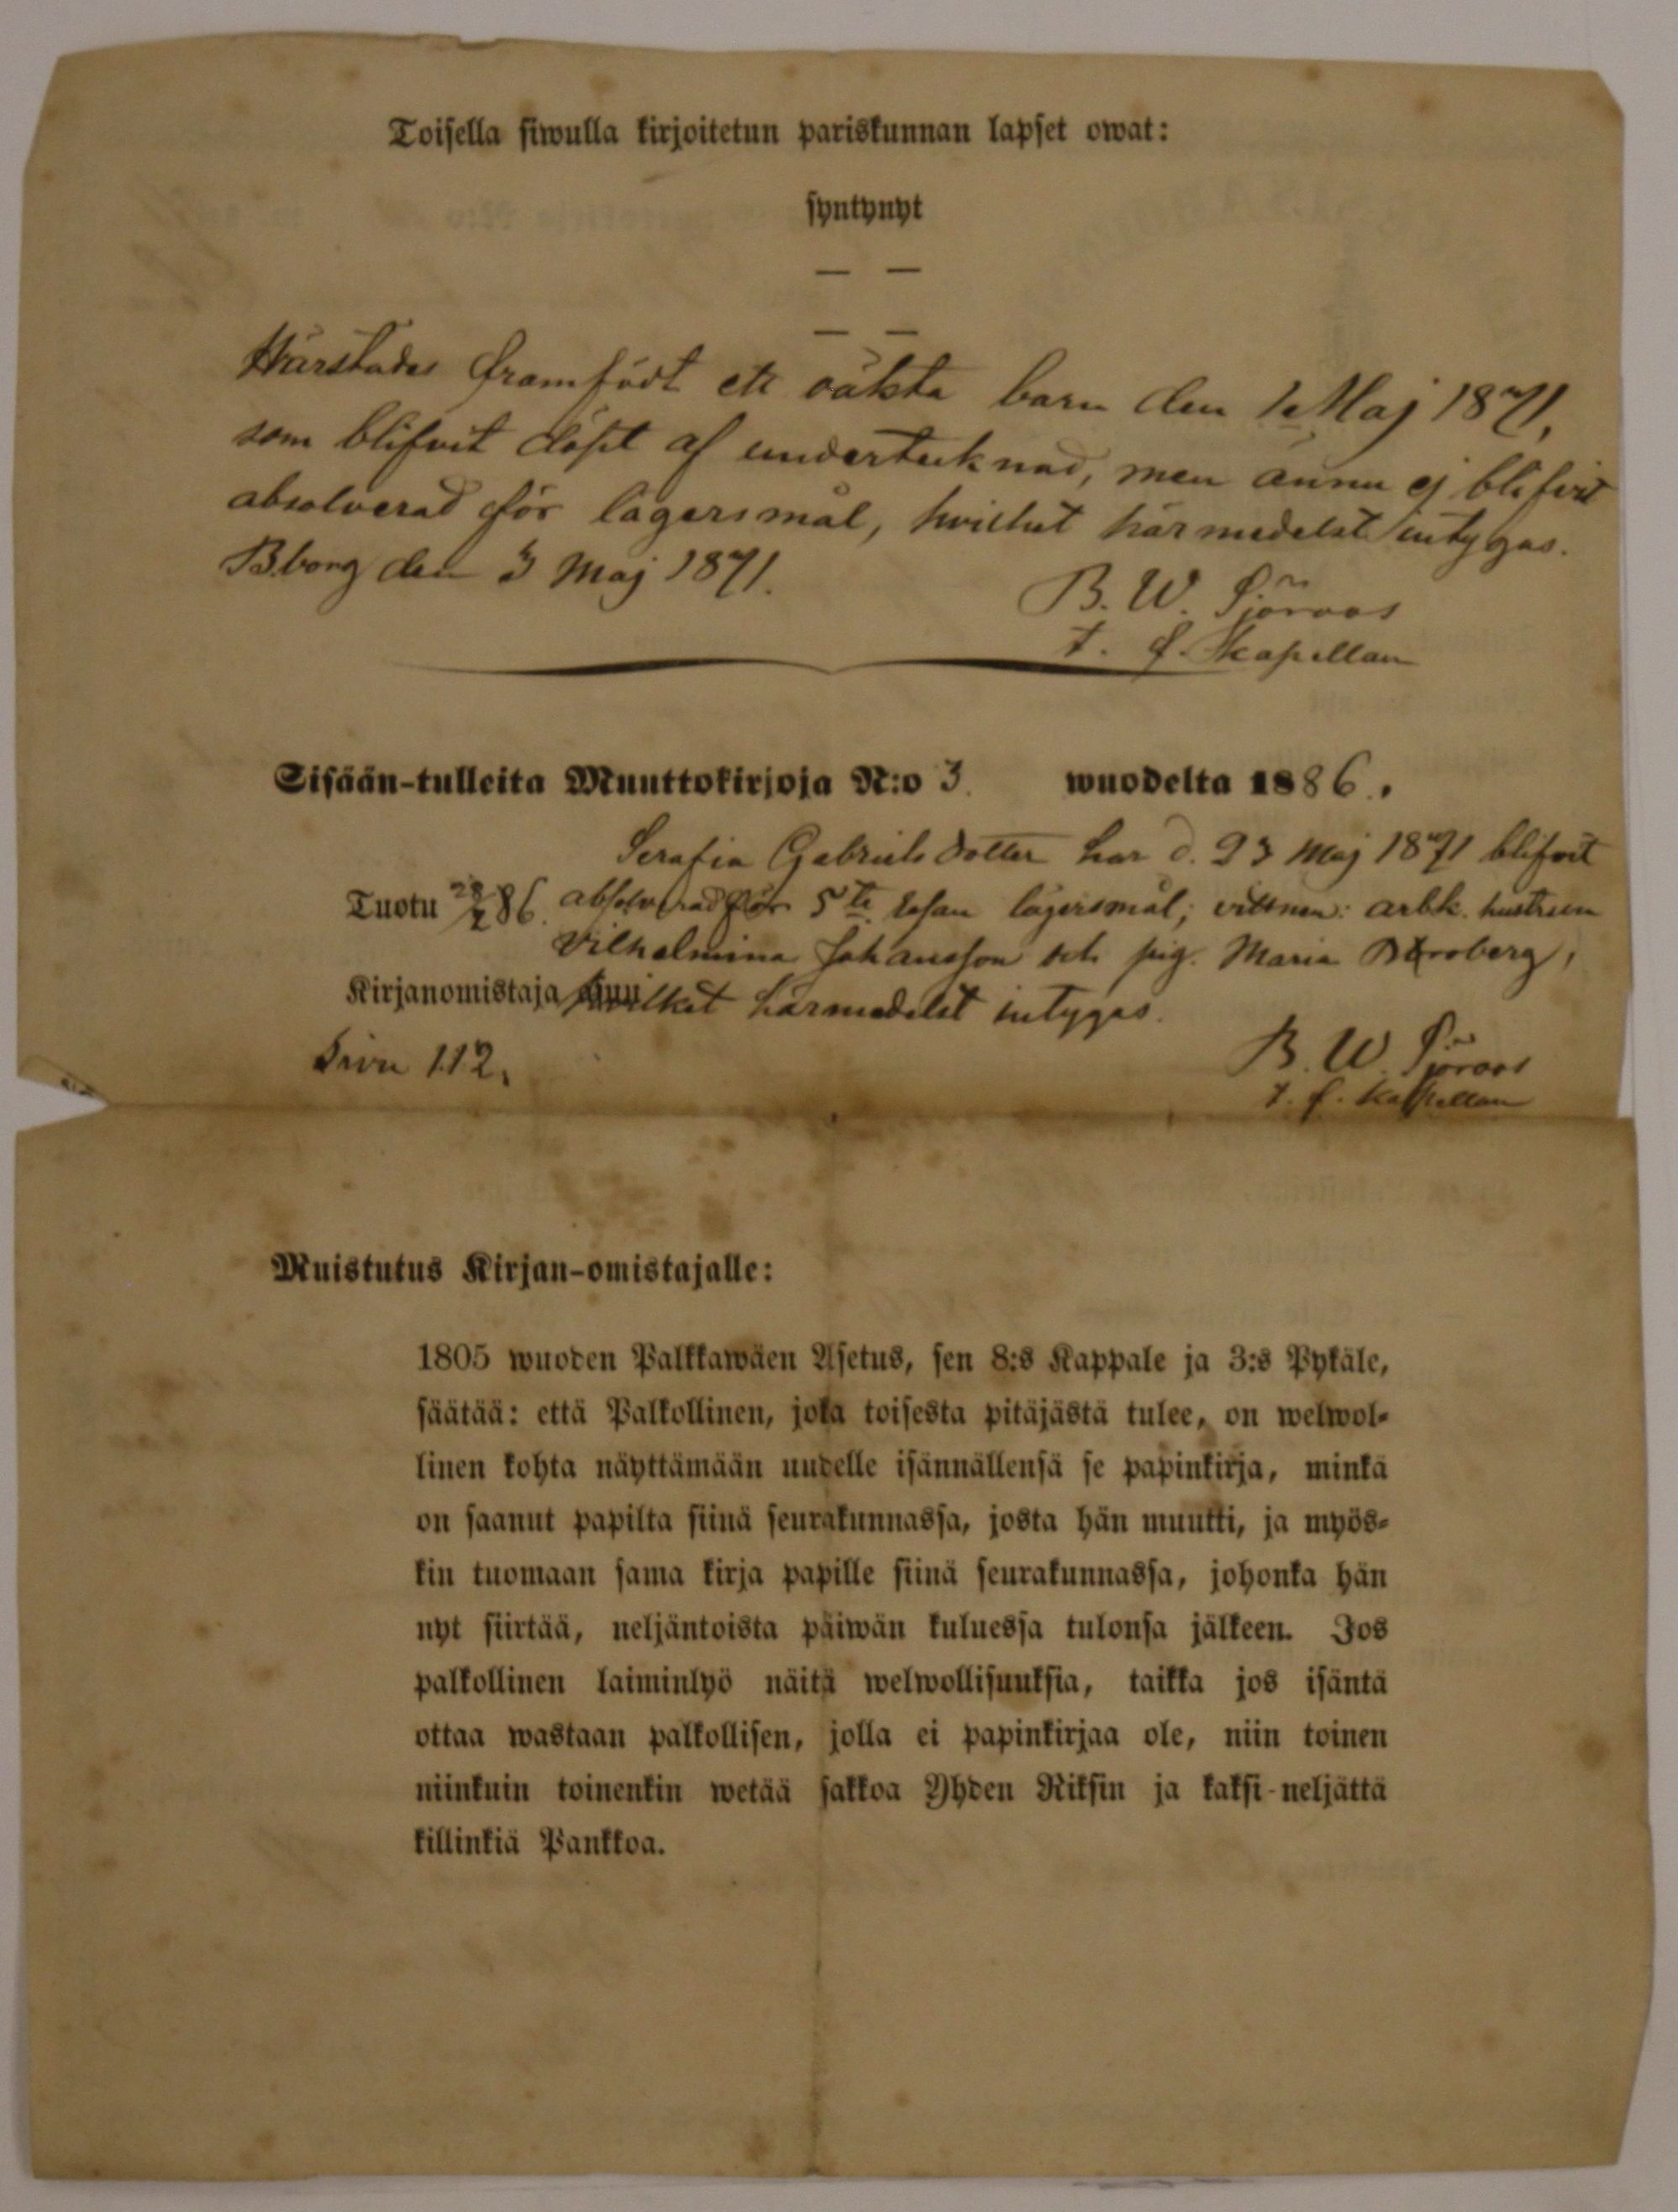 Toisella siwulla kirjoitetun pariskunnan lapset owat:
syntynyt
— —
— —
Härstädes framfödt ett oäkta barn den 1 Maj 1871,
som blifvit döpt af undertecknad, men ännu ej blifvit
absolverad för lägersmål, hvilket härmedelst intygas.
B.borg den 3 Maj 1871.
B. W. Sjöroos
t. f. Kapellan
Sisään-tulleita Muuttokirjoja N:o 3. wuodelta 1886.
Serafia Gabrielsdotter har d. 23 Maj 1871 blifvit
Tuotu 28/2 86. absolverad för 5te resan lägersmål; vittnen: arbk. hustrun
Vilhelmina Johansson och pig. Maria
Kirjanomistaja hvilket härmedelst intygas.
Sivu 112.
B. W. Sjöroos
t. f. Kapellan
Muistutus Kirjan-omistajalle:
1805 wuoden Palkkawäen Asetus, sen 8:s Kappale ja 3:s Pykäle,
säätää: että Palkollinen, joka toisesta pitäjästä tulee, on welwol-
linen kohta näyttämään uudelle isännällensä se papinkirja, minkä
on saanut papilta siinä seurakunnassa, josta hän muutti, ja myös-
kin tuomaan sama kirja papille siinä seurakunnassa, johonka hän
nyt siirtää, neljäntoista päiwän kuluessa tulonsa jälkeen. Jos
palkollinen laiminlyö näitä welwollisuuksia, taikka jos isäntä
ottaa wastaan palkollisen, jolla ei papinkirjaa ole, niin toinen
niinkuin toinenkin wetää sakkoa Yhden Riksin ja kaksi-neljättä
killinkiä Pankkoa.